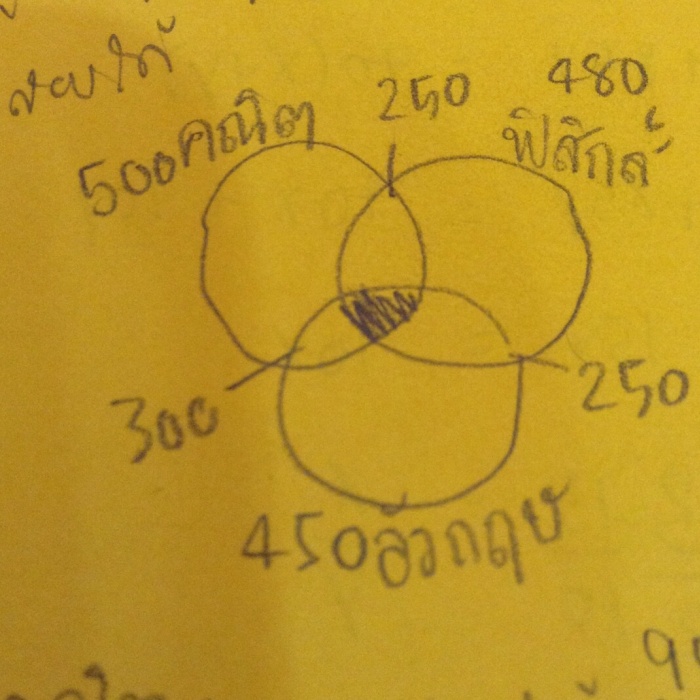 สอบได้
250
480
500คณิต
ฟิสิกส์
300
250
450อังกฤษ